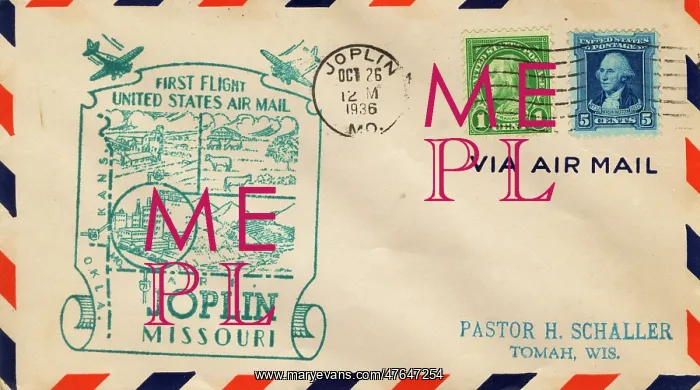 FIRST FLIGHT
UNITED STATES AIR MAIL
KANSAS
OKLA
MO.
ARK
JOPLIN
MISSOURI
JOPLIN
OCT 26
12 M
1936
MO.
1
1 CENT 1
UNITED STATES
POSTAGE
5 CENTS 5
VIA AIR MAIL
ME
PL
ME
PL
PASTOR H. SCHALLER
TOMAH, WIS.
www.maryevans.com/47647254